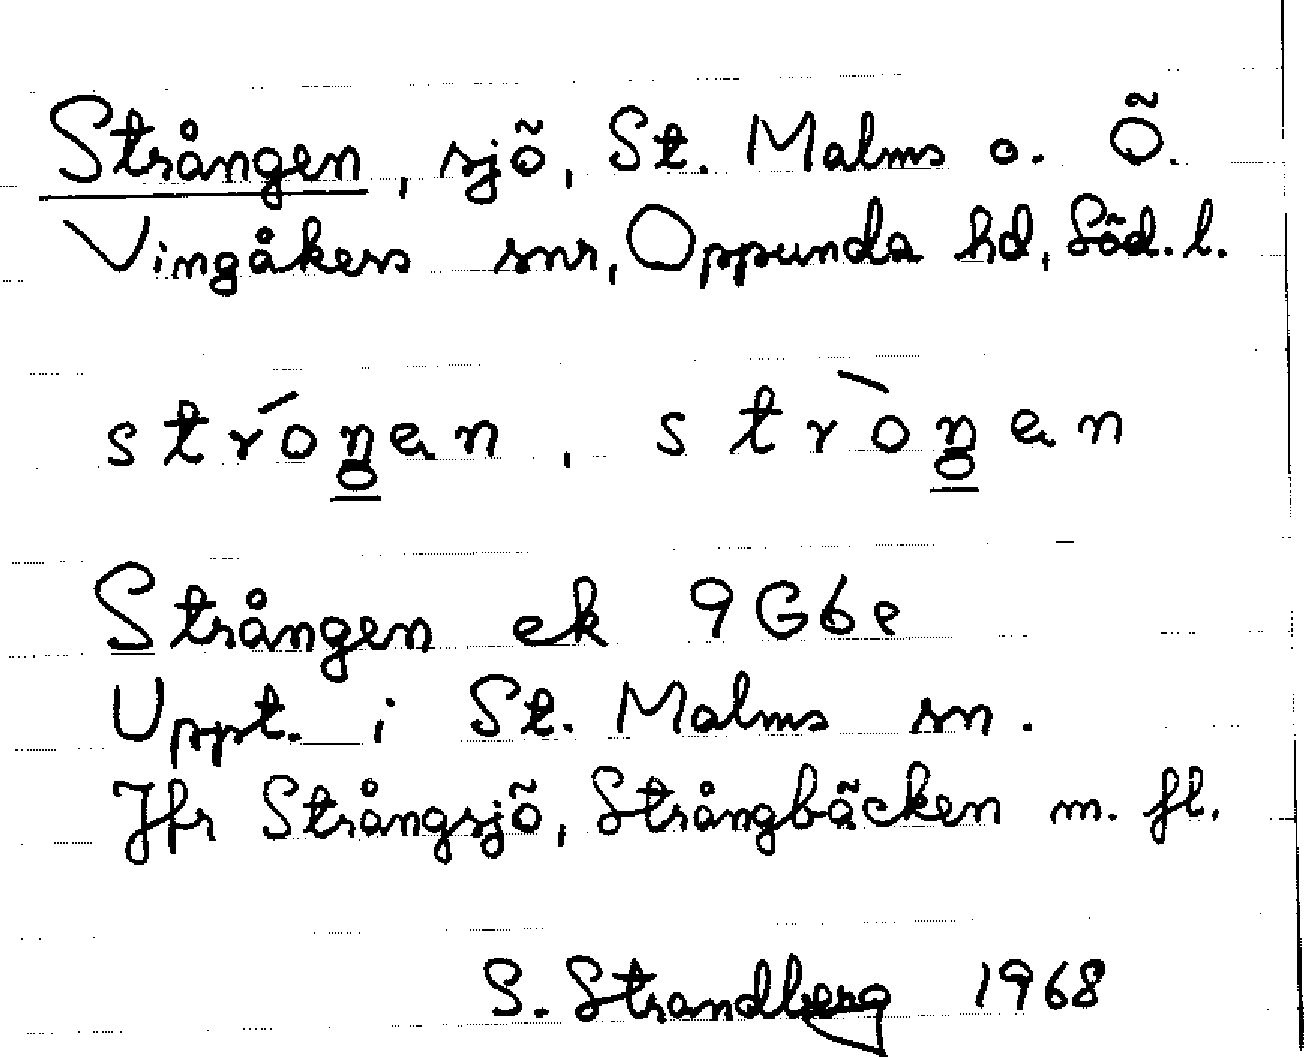 Strången, sjö, St. Malms o. Ö.
Vingåkers snr, Oppunda hd, Söd. l.
stróŋan, stròŋan
Strången ek 9G6e
Uppt. i St. Malms sn.
Jfr Strångsjö, Strångbäcken m. fl.
S. Strandberg 1968